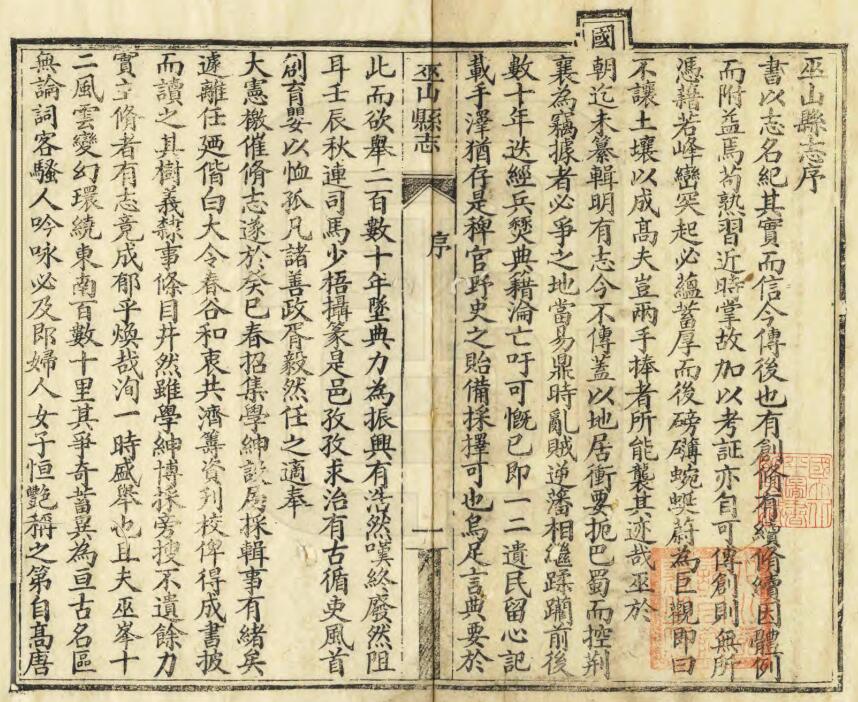 巫山縣志序
書以志名紀其實而信今傳後也有創脩有續脩續因體例
而附益焉苟熟習近時掌故加以考証亦自可傳創則無所
憑藉若峰巒突起必蘊蓄厚而後磅礴蜿蜒蔚為巨觀即曰
不讓土壤以成髙夫豈兩手捧者所能襲其迹哉巫於
國
朝迄未纂輯明有志今不傳蓋以地居衝要扼巴蜀而控荆
襄為竊據者必爭之地當易鼎時亂賊逆藩相繼蹂躪前後
數十年迭經兵燹典籍淪亡吁可慨已即一二遺民留心記
載手澤猶存是稗官野史之貽備採擇可也烏足言典要於
巫山縣志
序
一
此而欲舉二百數十年墜典力為振興有浩然嘆終廢然阻
耳壬辰秋連司馬少梧攝篆是邑孜孜求治有古循吏風首
創育嬰以恤孤凡諸善政胥毅然任之適奉
大憲檄催脩志遂於癸巳春招集學紳設局採輯事有緒矣
遽離任廼偕白大令春谷和衷共濟籌資刋校俾得成書披
而讀之其樹義隸事條目井然雖學紳博採旁搜不遺餘力
實主脩者有志竟成郁乎煥哉洵一時盛舉也且夫巫峯十
二風雲變幻環繞東南百數十里其爭奇蓄異為亘古名區
無論詞客騷人吟咏必及即婦人女子恒艷稱之第自髙唐